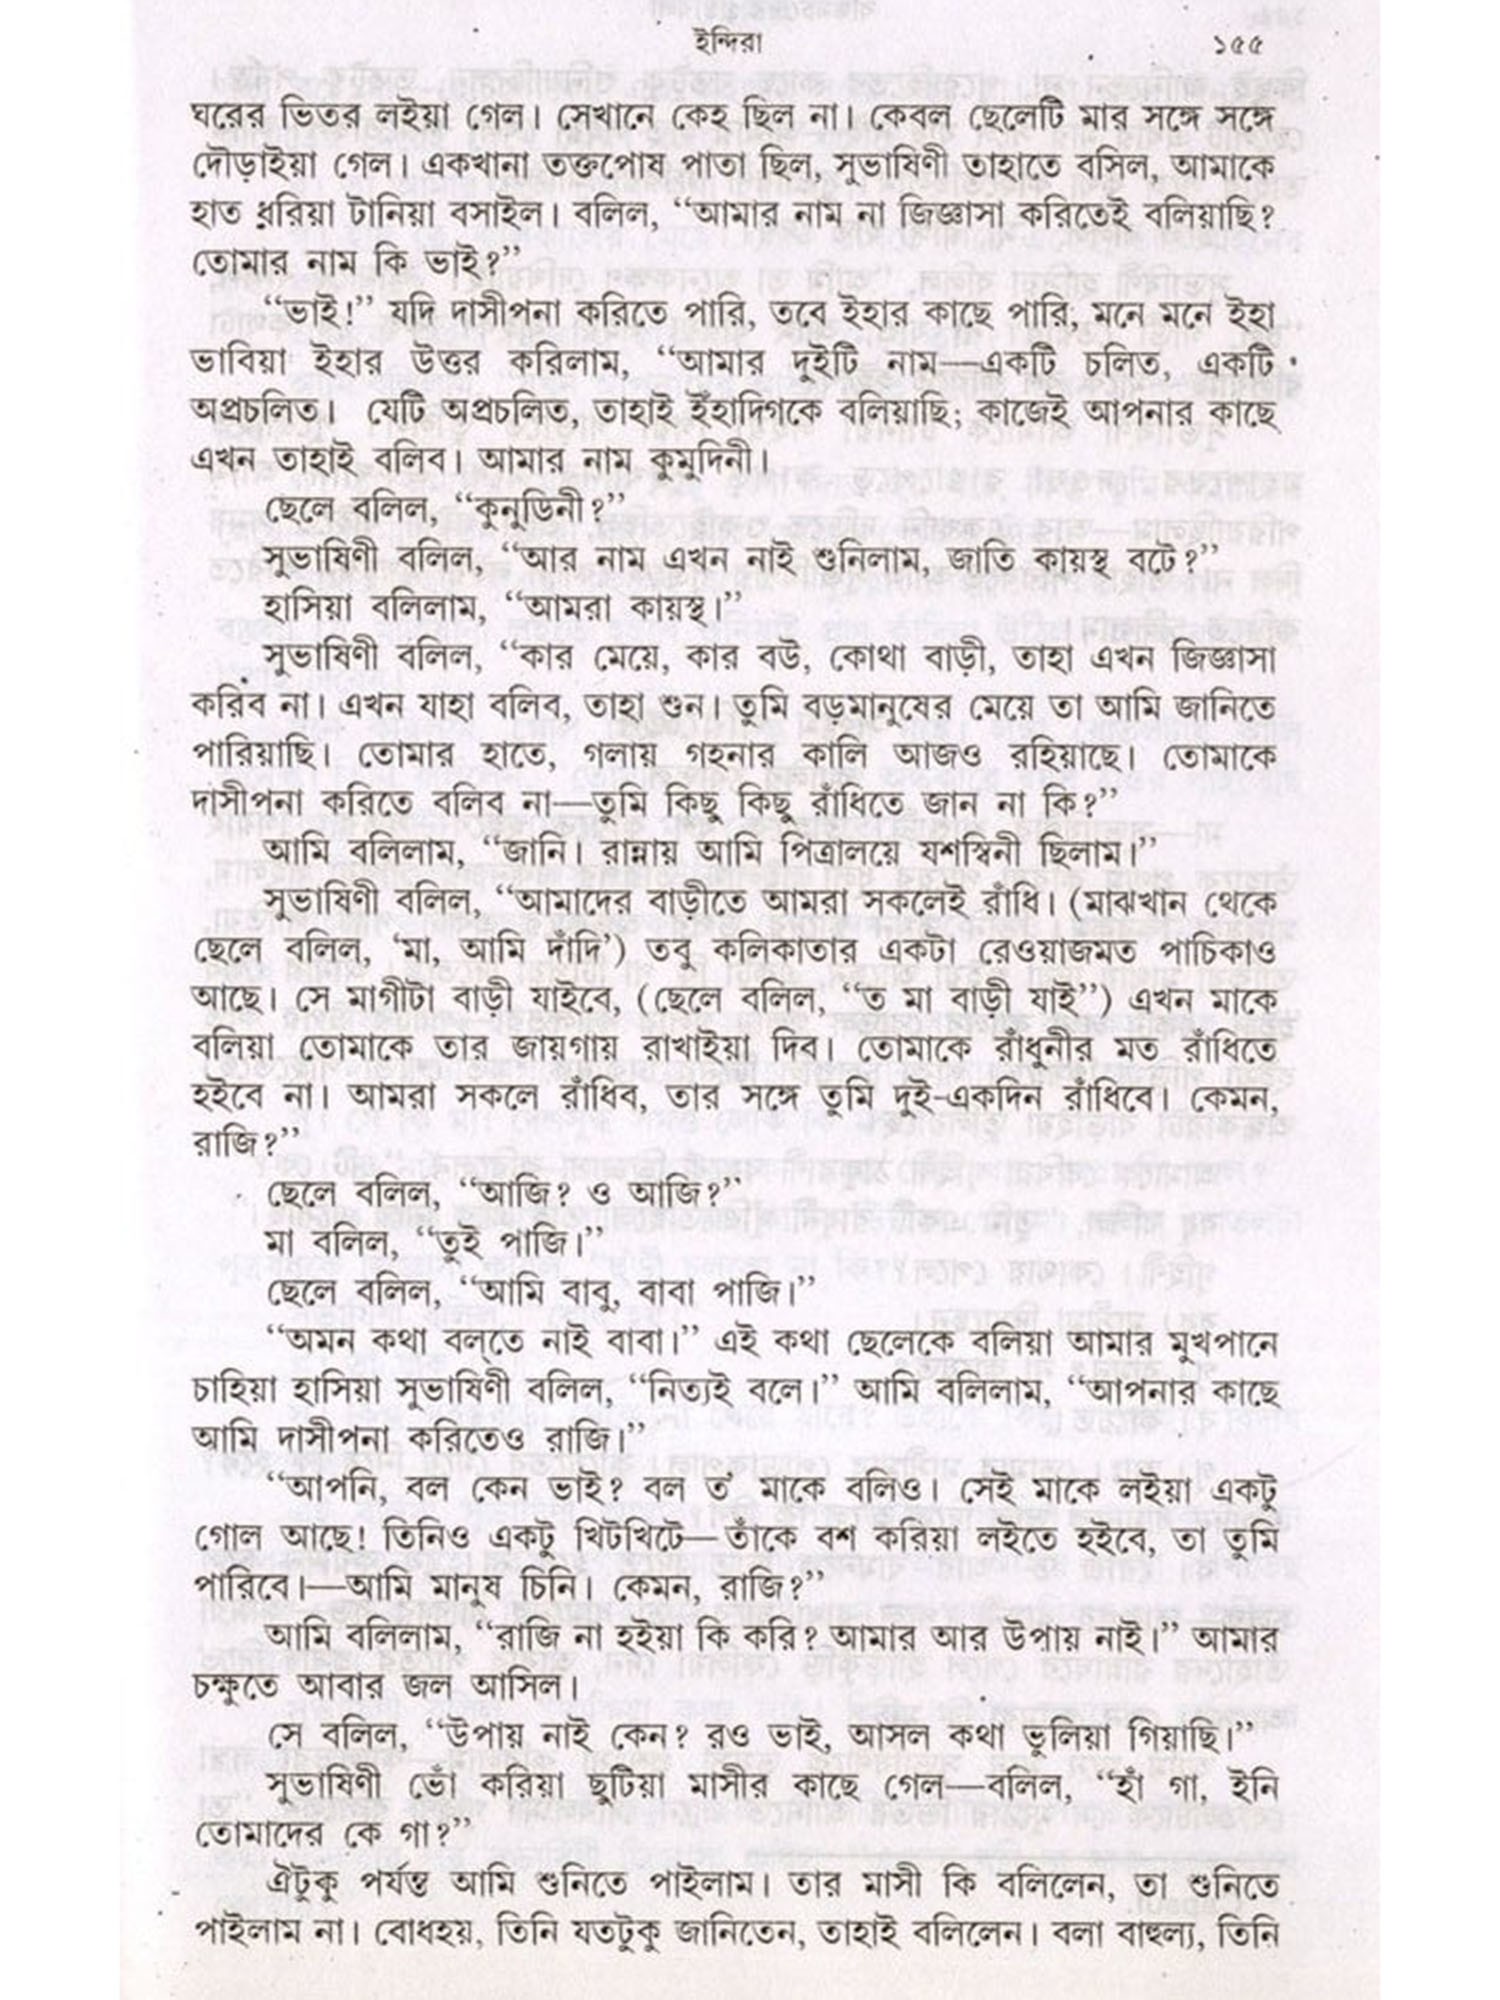 ইন্দিরা ১৫৫
ঘরের ভিতর লইয়া গেল। সেখানে কেহ ছিল না। কেবল ছেলেটি মার সঙ্গে সঙ্গে
দৌড়াইয়া গেল। একখানা তক্তপোষ পাতা ছিল, সুভাষিণী তাহাতে বসিল, আমাকে
হাত ধরিয়া টানিয়া বসাইল। বলিল, “আমার নাম না জিজ্ঞাসা করিতেই বলিয়াছি?
তোমার নাম কি ভাই?”
“ভাই!” যদি দাসীপনা করিতে পারি, তবে ইহার কাছে পারি, মনে মনে ইহা
ভাবিয়া ইহার উত্তর করিলাম, “আমার দুইটি নাম—একটি চলিত, একটি
অপ্রচলিত। যেটি অপ্রচলিত, তাহাই ইঁহাদিগকে বলিয়াছি; কাজেই আপনার কাছে
এখন তাহাই বলিব। আমার নাম কুমুদিনী।
ছেলে বলিল, “কুনুডিনী?”
সুভাষিণী বলিল, “আর নাম এখন নাই শুনিলাম, জাতি কায়স্থ বটে?”
হাসিয়া বলিলাম, “আমরা কায়স্থ।”
সুভাষিণী বলিল, “কার মেয়ে, কার বউ, কোথা বাড়ী, তাহা এখন জিজ্ঞাসা
করিব না। এখন যাহা বলিব, তাহা শুন। তুমি বড়মানুষের মেয়ে তা আমি জানিতে
পারিয়াছি। তোমার হাতে, গলায় গহনার কালি আজও রহিয়াছে। তোমাকে
দাসীপনা করিতে বলিব না—তুমি কিছু কিছু রাঁধিতে জান না কি?”
আমি বলিলাম, “জানি। রান্নায় আমি পিত্রালয়ে যশস্বিনী ছিলাম।”
সুভাষিণী বলিল, “আমাদের বাড়ীতে আমরা সকলেই রাঁধি। (মাঝখান থেকে
ছেলে বলিল, ‘মা, আমি দাঁদি’) তবু কলিকাতার একটা রেওয়াজমত পাচিকাও
আছে। সে মাগীটা বাড়ী যাইবে, (ছেলে বলিল, “ত মা বাড়ী যাই”) এখন মাকে
বলিয়া তোমাকে তার জায়গায় রাখাইয়া দিব। তোমাকে রাঁধুনীর মত রাঁধিতে
হইবে না। আমরা সকলে রাঁধিব, তার সঙ্গে তুমি দুই-একদিন রাঁধিবে। কেমন,
রাজি?”
ছেলে বলিল, “আজি? ও আজি?”
মা বলিল, “তুই পাজি।”
ছেলে বলিল, “আমি বাবু, বাবা পাজি।”
“অমন কথা বল্‌তে নাই বাবা।” এই কথা ছেলেকে বলিয়া আমার মুখপানে
চাহিয়া হাসিয়া সুভাষিণী বলিল, “নিত্যই বলে।” আমি বলিলাম, “আপনার কাছে
আমি দাসীপনা করিতেও রাজি।”
“আপনি, বল কেন ভাই? বল ত’ মাকে বলিও। সেই মাকে লইয়া একটু
গোল আছে! তিনিও একটু খিটখিটে—তাঁকে বশ করিয়া লইতে হইবে, তা তুমি
পারিবে।—আমি মানুষ চিনি। কেমন, রাজি?”
আমি বলিলাম, “রাজি না হইয়া কি করি? আমার আর উপায় নাই।” আমার
চক্ষুতে আবার জল আসিল।
সে বলিল, “উপায় নাই কেন? রও ভাই, আসল কথা ভুলিয়া গিয়াছি।”
সুভাষিণী ভোঁ করিয়া ছুটিয়া মাসীর কাছে গেল—বলিল, “হাঁ গা, ইনি
তোমাদের কে গা?”
ঐটুকু পর্যন্ত আমি শুনিতে পাইলাম। তার মাসী কি বলিলেন, তা শুনিতে
পাইলাম না। বোধহয়, তিনি যতটুকু জানিতেন, তাহাই বলিলেন। বলা বাহুল্য, তিনি